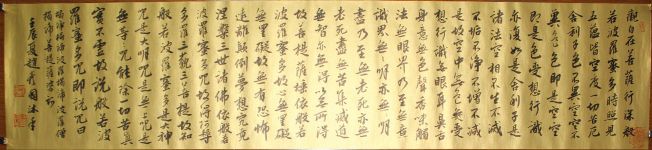 觀自在菩薩行深般
若波羅蜜多時照見
五蘊皆空度一切苦厄
舍利子色不異空空不
異色色即是空空
即是色受想行識
亦復如是舍利子是
諸法空相不生不滅
不垢不淨不增不減
是故空中無色無受
想行識無眼耳鼻舌
身意無色聲香味觸
法無眼界乃至無意
識界無無明亦無無明
盡乃至無老死亦無
老死盡無苦集滅道
無智亦無得以無所得
故菩提薩埵依般若
波羅蜜多故心無罣礙
無罣礙故無有恐怖
遠離顛倒夢想究竟
涅槃三世諸佛依般若
波羅蜜多故得阿耨
多羅三藐三菩提故知
般若波羅蜜多是大神
咒是大明咒是無上咒是
無等等咒能除一切苦真
實不虛故說般若波
羅蜜多咒即說咒曰
揭諦揭諦波羅揭諦波羅僧
揭諦菩提薩婆訶
壬辰夏 沐手